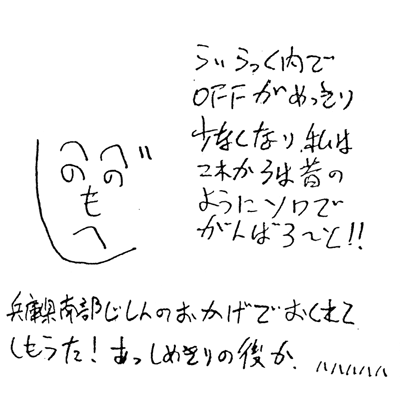 らいらっく内で
OFFがめっきり
少なくなり、私は
これからは昔の
ようにソロで
がんばろ〜と!!
へへ
のの
も
へ
じ
兵庫県南部じしんのおかげでおくれて
しもうた! あっしめきりの後か.